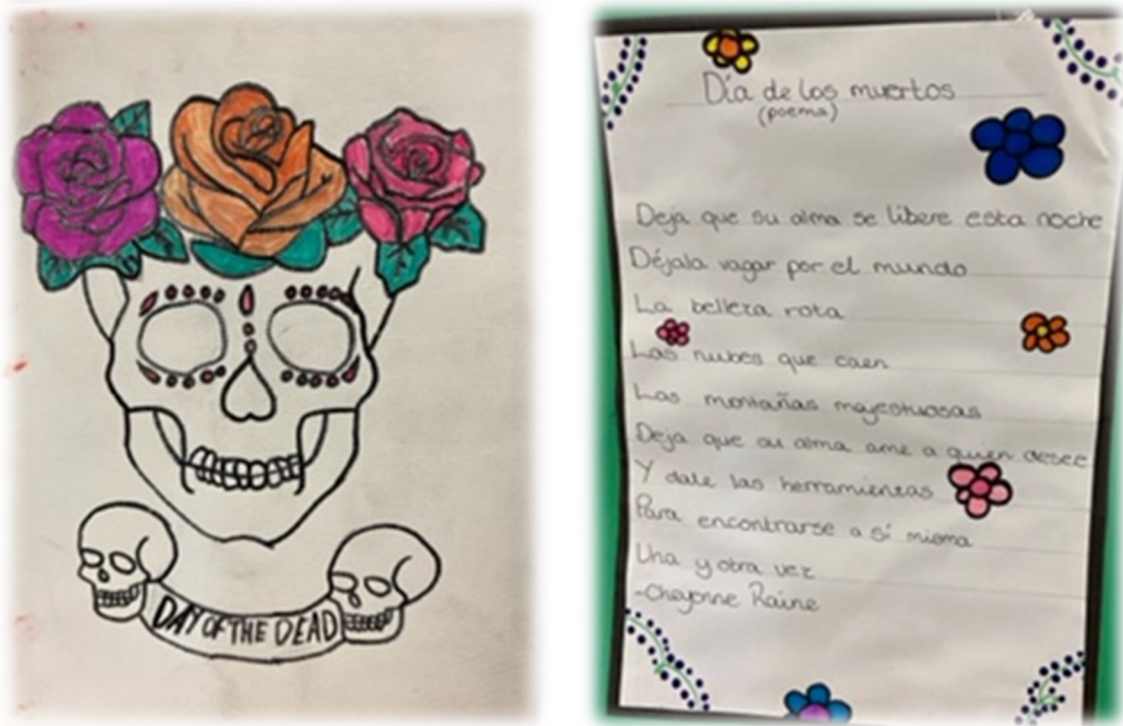 DAY OF THE DEAD
Día de los muertos
(poema)
Deja que su alma se libere esta noche
Déjala vagar por el mundo
La belleza rota
Las nubes que caen
Las montañas majestuosas
Deja que su alma ame a quien desee
Y dale las herramientas
Para encontrarse a sí misma
Una y otra vez
-Cheyenne Raine